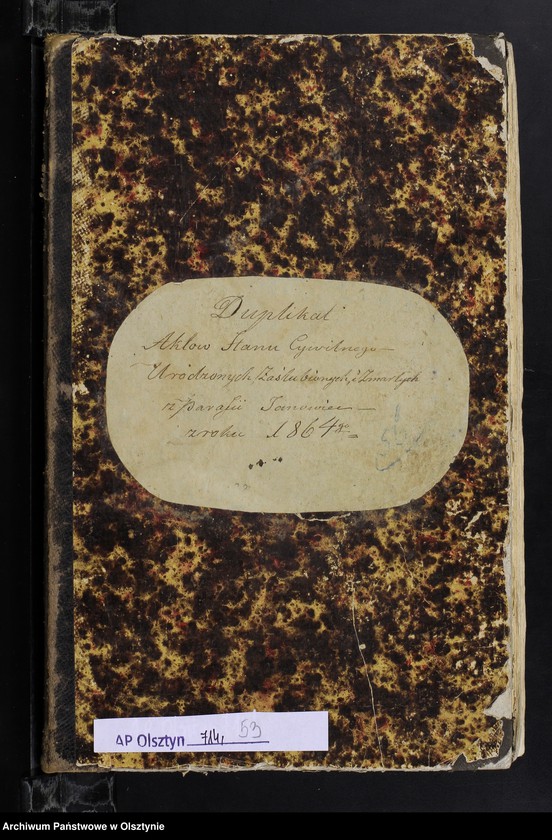 Duplikat
Aktow Stanu Cywilnego
Urodzonych, Zaślubionych, i Zmarłych
z Parafii Janowiec
z roku 1864go
AP Olsztyn 714, 53
Archiwum Państwowe w Olsztynie